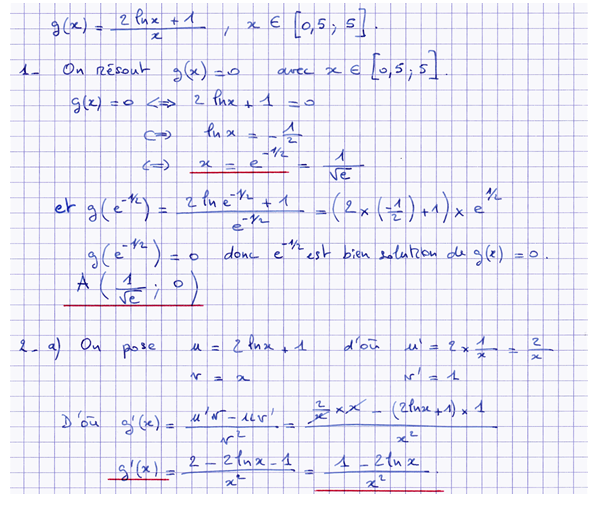 g(x) = (2 ln x + 1)/x , x ∈ [0,5 ; 5].
1_ On résout g(x) = 0 avec x ∈ [0,5 ; 5].
g(x) = 0 <=> 2 ln x + 1 = 0
<=> ln x = - 1/2
<=> x = e^(-1/2) = 1/√e
et g(e^(-1/2)) = (2 ln e^(-1/2) + 1)/e^(-1/2) = (2 × (-1/2) + 1) × e^(1/2)
g(e^(-1/2)) = 0 donc e^(-1/2) est bien solution de g(x) = 0.
A (1/√e ; 0)
2_ a) On pose u = 2 ln x + 1 d'où u' = 2 × 1/x = 2/x
v = x v' = 1
D'où g'(x) = (u'v - uv')/v² = (2/x × x - (2 ln x + 1) × 1)/x²
g'(x) = (2 - 2 ln x - 1)/x² = (1 - 2 ln x)/x².